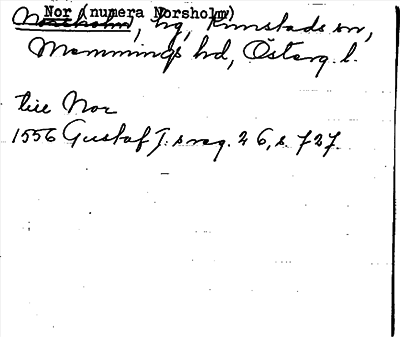 Nor (numera Norsholm)
Norsholm, hg, Kimstads sn,
Memmings hd, Österg. l.
tiie Nor
1556 Gustaf I:s reg. 26, s. 727.